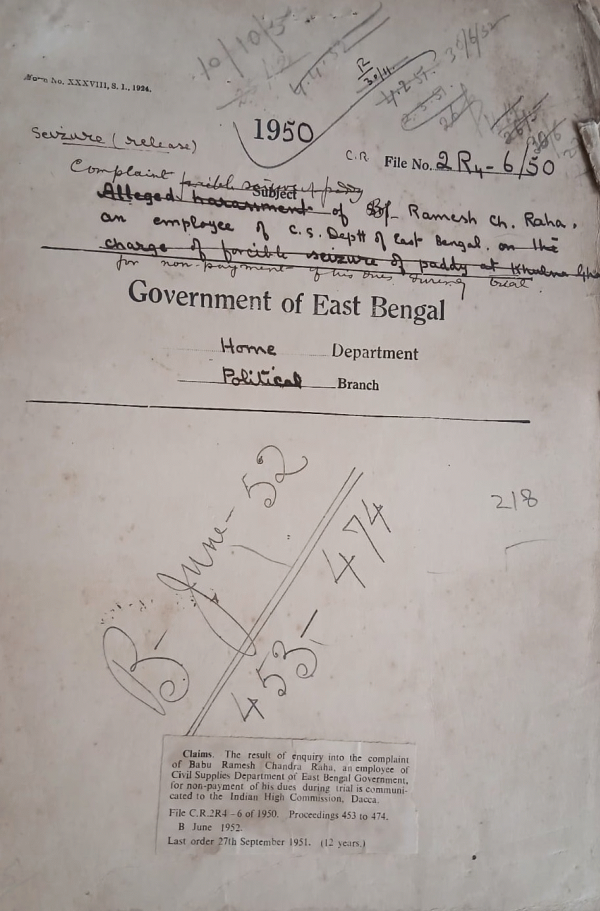 10/10/5
4.4.52
R
30/4
4.2.51.
30/6/52
2.5.51.
Form No. XXXVIII, S. I., 1924.
1950
Seizure (release)
C.R File No. 2R4-6/50
Complaint forcible seizure of paddy
Subject
Alleged harassment of Ramesh Ch. Raha,
an employee of C.S. Deptt of East Bengal. on the
charge of forcible seizure of paddy at Khulna
for non-payment of his dues during trial.
Government of East Bengal
Home Department
Political Branch
B- June- 52
453- 474
218
Claims. The result of enquiry into the complaint
of Babu Ramesh Chandra Raha, an employee of
Civil Supplies Department of East Bengal Government,
for non-payment of his dues during trial is communi-
cated to the Indian High Commission, Dacca.
File C.R.2R4-6 of 1950. Proceedings 453 to 474.
B June 1952.
Last order 27th September 1951. (12 years.)